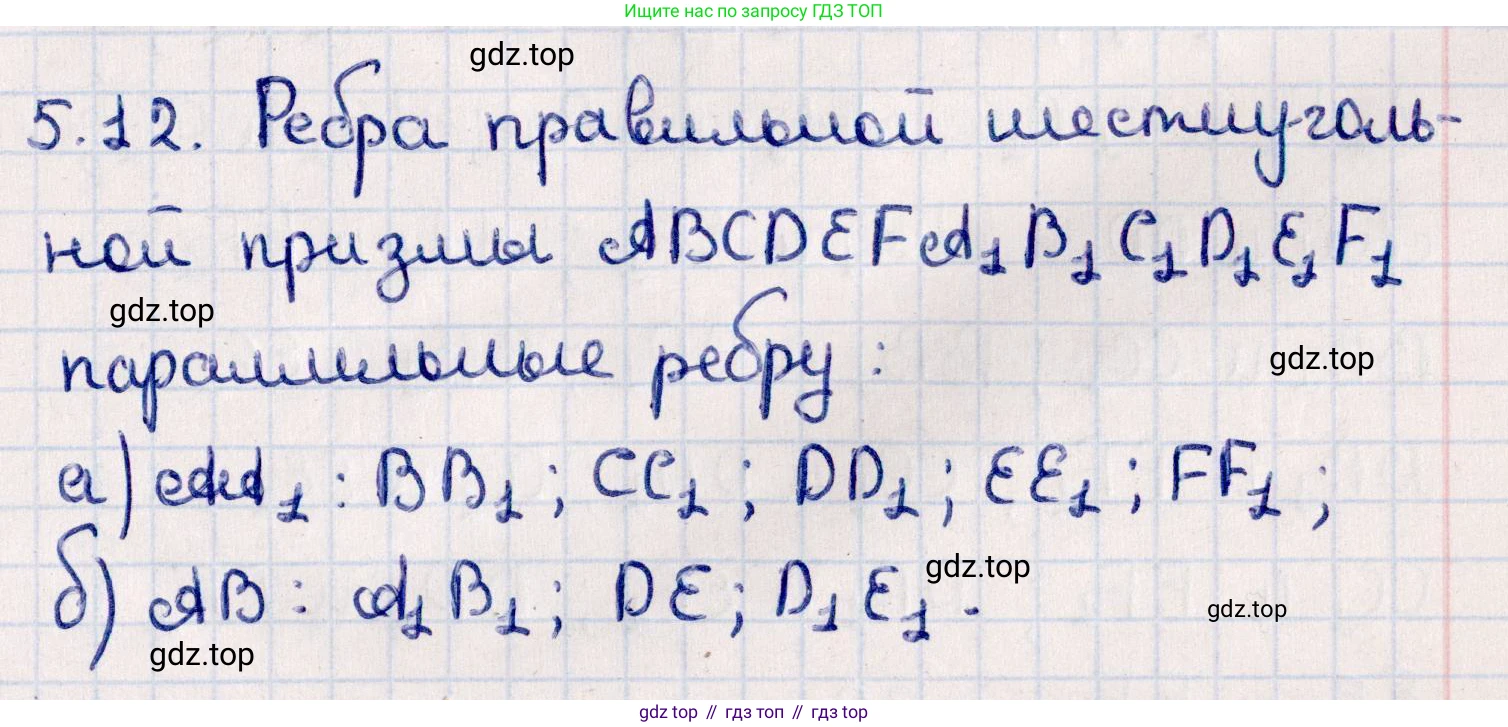 Ищите нас по запросу ГДЗ ТОП
gdz.top
5.12. Ребра правильной шестиуголь-
ной призмы ABCDEFA₁B₁C₁D₁E₁F₁
gdz.top
параллельные ребру:
gdz.top
а) AA₁: BB₁; CC₁; DD₁; EE₁; FF₁;
б) AB: A₁B₁; DE; D₁E₁.
gdz.top
gdz.top
gdz.top
gdz top // гдз топ // гдз top